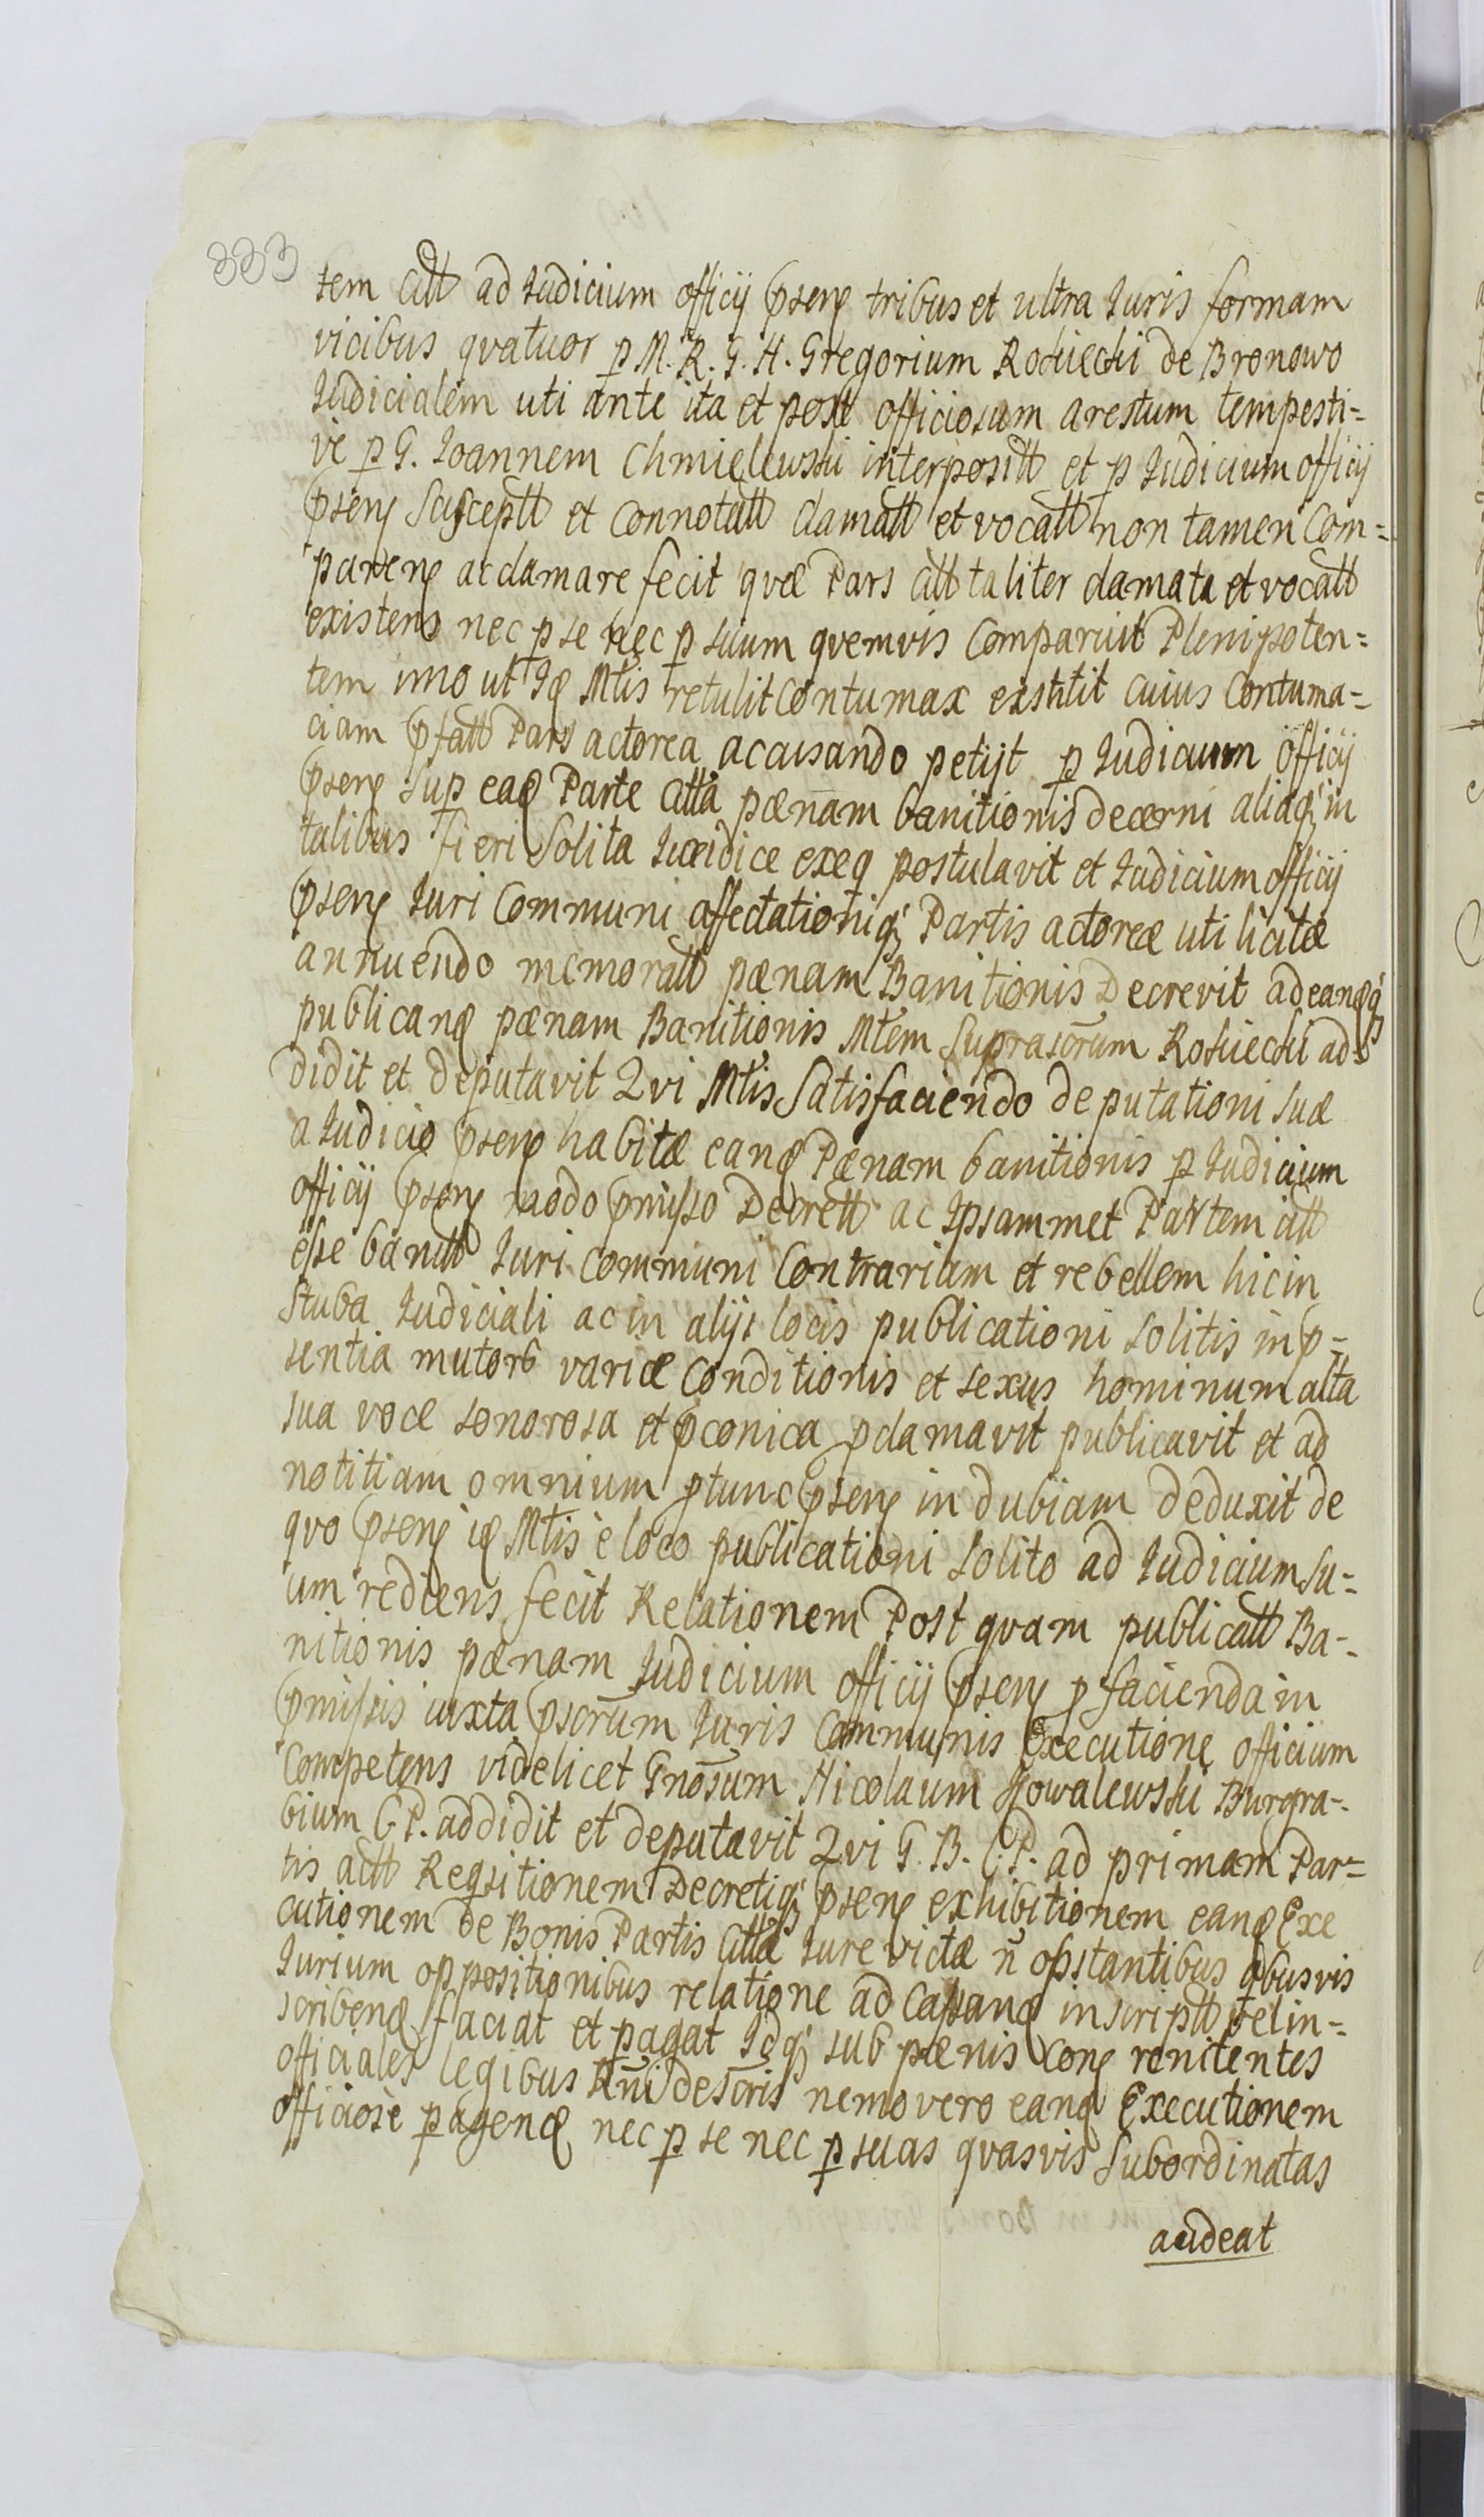 333
tem citt ad Iudicium officij pseng tribus et ultra Iuris formam
vicibus qvatuor p M. R. G. H. Gregorium Rościechi de Bronowo
Iudicialem uti ante ita et post officiosum arestum tempesti=
ve p G. Ioannem Chmielewski interpositt et p Iudicium officij
pseng Susceptt et Connotatt clamatt et vocatt non tamen Com=
pareng acclamare fecit qvæ Pars citt taliter clamata et vocatt
existens nec p se nec p suum qvemvis Comparuit Plenipoten=
tem imo ut Iq Mtis retulit Contumax exstitit cuius Contuma=
ciam pfatt Pars actorea accusando petijt p Iudicium officij
pseng sup eaq Parte citta pœnam banitionis decerni aliaq in
talibus fieri Solita Iuridice exeq postulavit et Iudicium officij
pseng Iuri Communi affectationiq Partis actoreæ uti licitæ
annuendo memoratt pœnam Banitionis Decrevit ad eanqq
publicanq pœnam Banitionis Mtem Suprascrum Rościechi ad=
didit et deputavit Qvi Mtis Satisfaciendo deputationi suæ
a Iudicio pseng habitæ eanq Pœnam banitionis p Iudicium
officij pseng modo pmisso Decrett ac Ipsammet Partem citt
esse banitt Iuri Communi Contrariam et rebellem hic in
Stuba Iudiciali ac in alijs locis publicationi solitis in p=
sentia mutorb variæ Conditionis et sexus hominum alta
sua voce sonorosa et pconica pclamavit publicavit et ad
notitiam omnium ptunc pseng indubiam deduxit de
qvo pseng iq Mtis è loco publicationi solito ad Iudicium Su=
um rediens fecit Relationem Post qvam publicatt Ba=
nitionis pœnam Iudicium officij pseng p facienda in
pmissis iuxta pscrum Iuris Communis Executione officium
Competens videlicet Gnosum Nicolaum Kowalewski Burgra=
bium C. P. addidit et deputavit Qvi G. B. C. P. ad primam Par=
tis actt Reqsitionem Decretiq pseng exhibitionem eanq Exe
cutionem de Bonis Partis Cittæ Iure victæ n obstantibus qbusvis
Iurium oppositionibus relatione ad Cassanq inscriptt vel in=
scribenq faciat et pagat Idq sub pœnis Cong renitentes
officiales legibus Rni descris nemo vero eanq Executionem
officiose pagenq nec p se nec p suas qvasvis Subordinatas
audeat